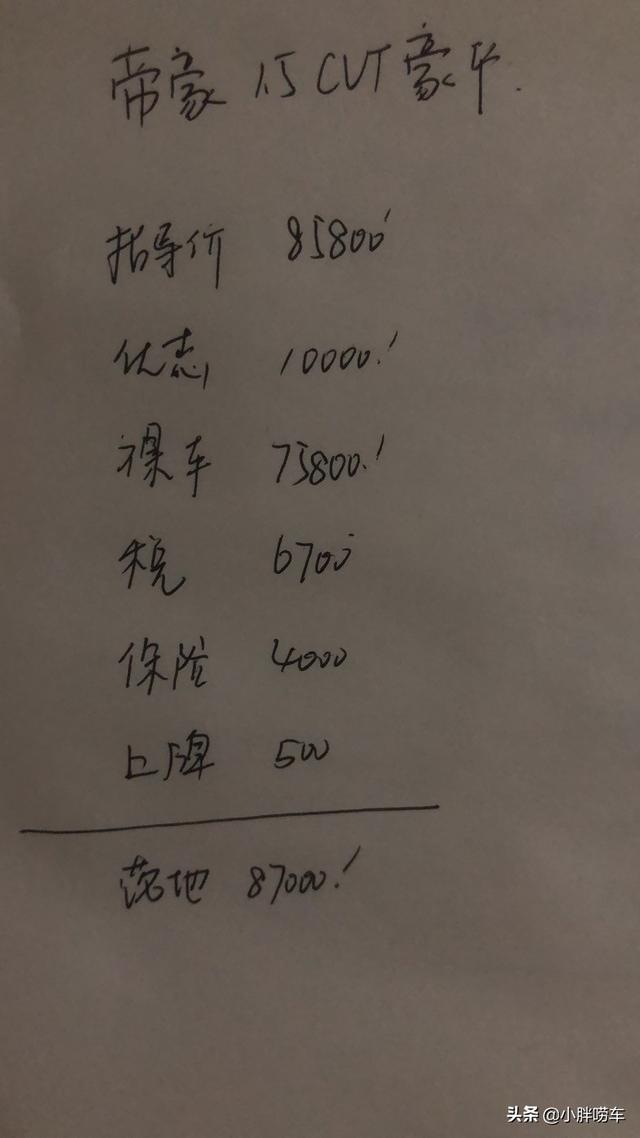 帝豪 1.5 CVT 豪华.
指导价 85800
优惠 10000.
裸车 75800.
税 6700
保险 4000
上牌 500
落地 87000.
头条 @小胖唠车